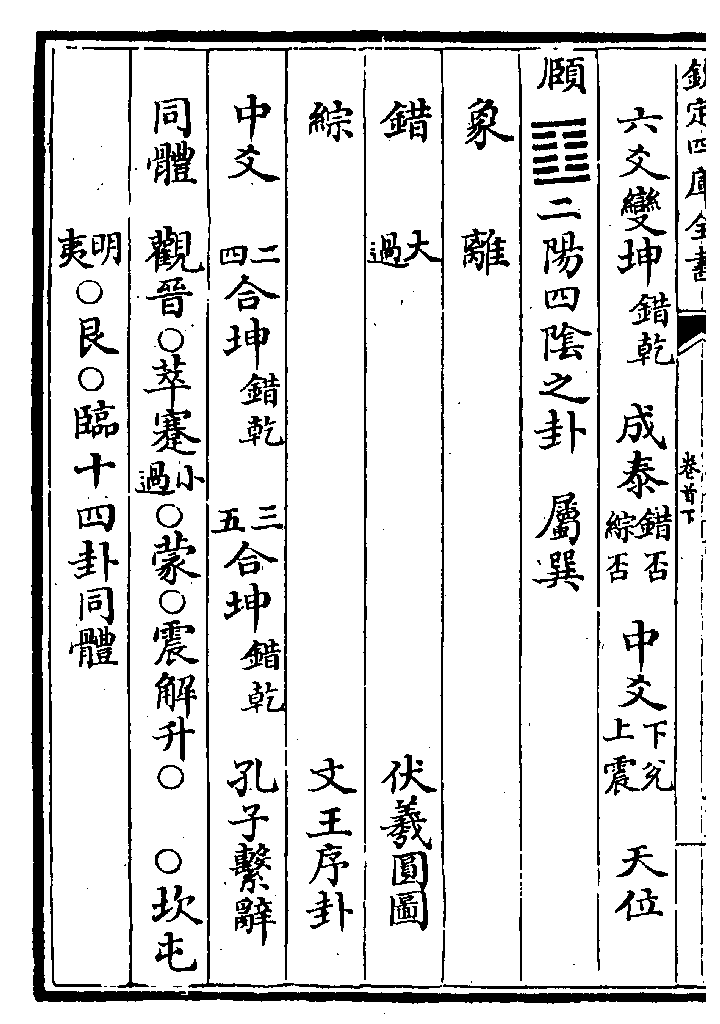 欽定四庫全書
卷首下
六爻變坤錯乾　成泰錯否綜否　中爻下兌上震　天位
頤䷚二陽四陰之卦　屬巽
象　離
錯　大過　伏羲圓圖
綜　文王序卦
中爻　二四合坤錯乾　三五合坤錯乾　孔子繫辭
同體　觀晉○萃蹇小過○蒙○震解升○　○坎屯
明夷○艮○臨十四卦同體